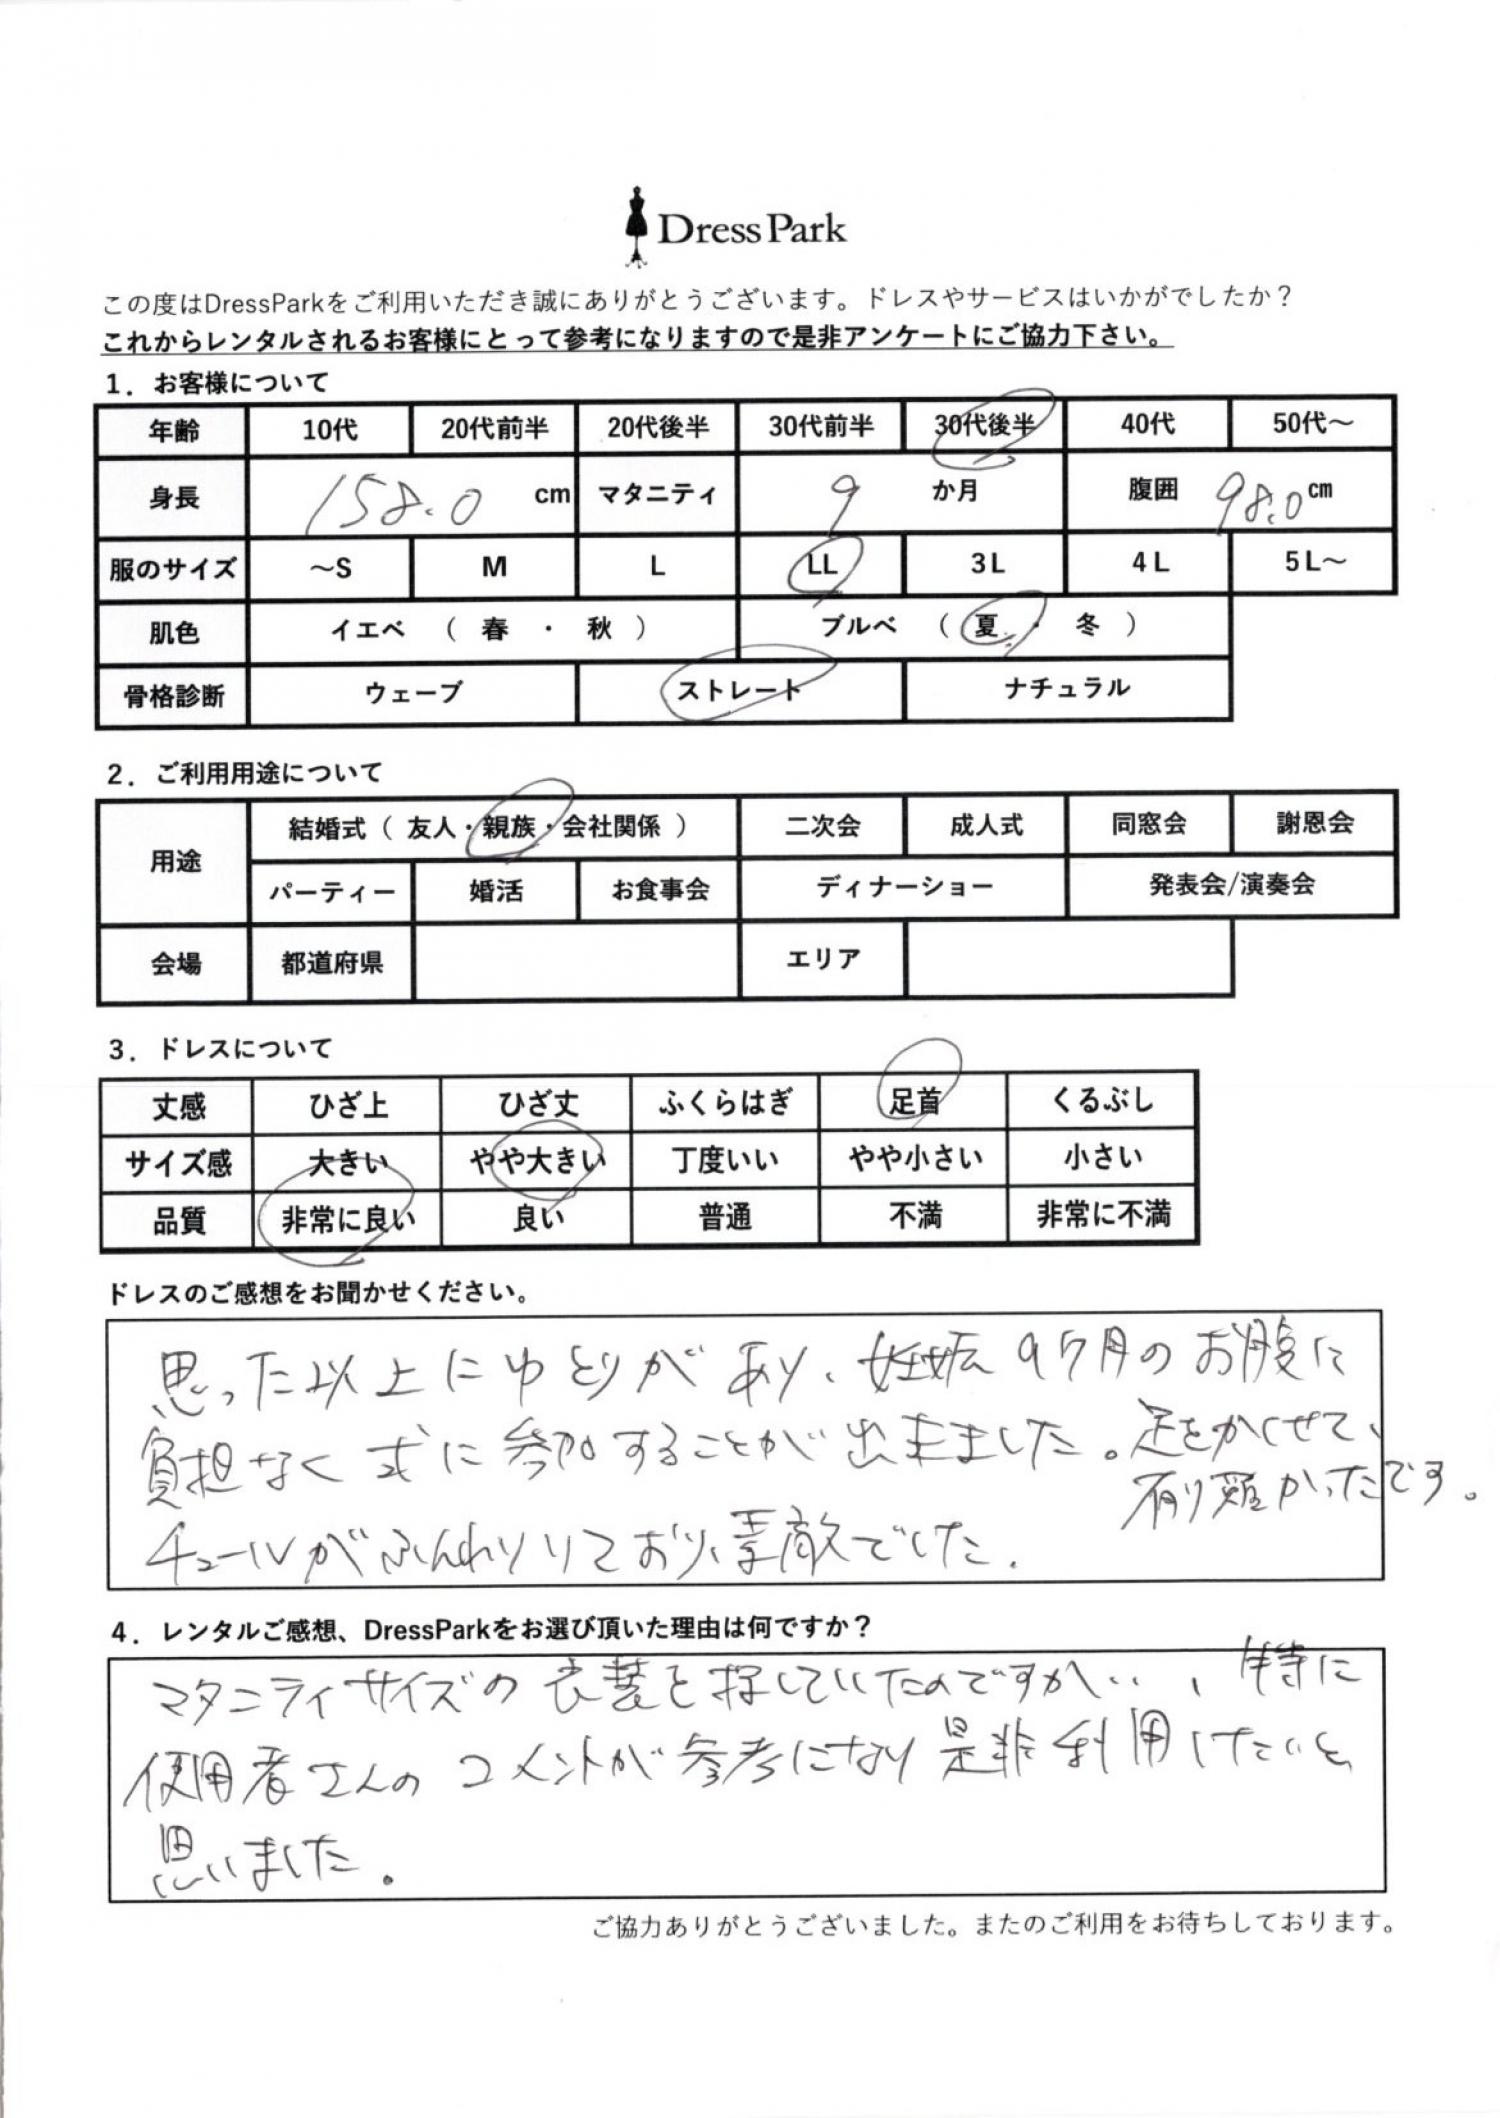 Dress Park
この度はDressParkをご利用いただき誠にありがとうございます。ドレスやサービスはいかがでしたか？
これからレンタルされるお客様にとって参考になりますので是非アンケートにご協力下さい。
1．お客様について
年齢 10代 20代前半 20代後半 30代前半 30代後半 40代 50代～
身長 158.0 cm マタニティ 9 か月 腹囲 98.0 cm
服のサイズ ～S M L LL 3L 4L 5L～
肌色 イエベ （ 春 ・ 秋 ） ブルベ （ 夏 ・ 冬 ）
骨格診断 ウェーブ ストレート ナチュラル
2．ご利用用途について
用途 結婚式（ 友人・親族・会社関係 ） 二次会 成人式 同窓会 謝恩会
パーティー 婚活 お食事会 ディナーショー 発表会/演奏会
会場 都道府県 エリア
3．ドレスについて
丈感 ひざ上 ひざ丈 ふくらはぎ 足首 くるぶし
サイズ感 大きい やや大きい 丁度いい やや小さい 小さい
品質 非常に良い 良い 普通 不満 非常に不満
ドレスのご感想をお聞かせください。
思った以上にゆとりがあり、妊娠9ヶ月のお腹に
負担なく式に参加することが出来ました。足をかくせて、
有り難かったです。
チュールがふんわりしており、素敵でした.
4．レンタルご感想、DressParkをお選び頂いた理由は何ですか？
マタニティサイズの衣装を探していたのですが‥、特に
使用者さんのコメントが参考になり是非利用したいと
思いました.
ご協力ありがとうございました。またのご利用をお待ちしております。